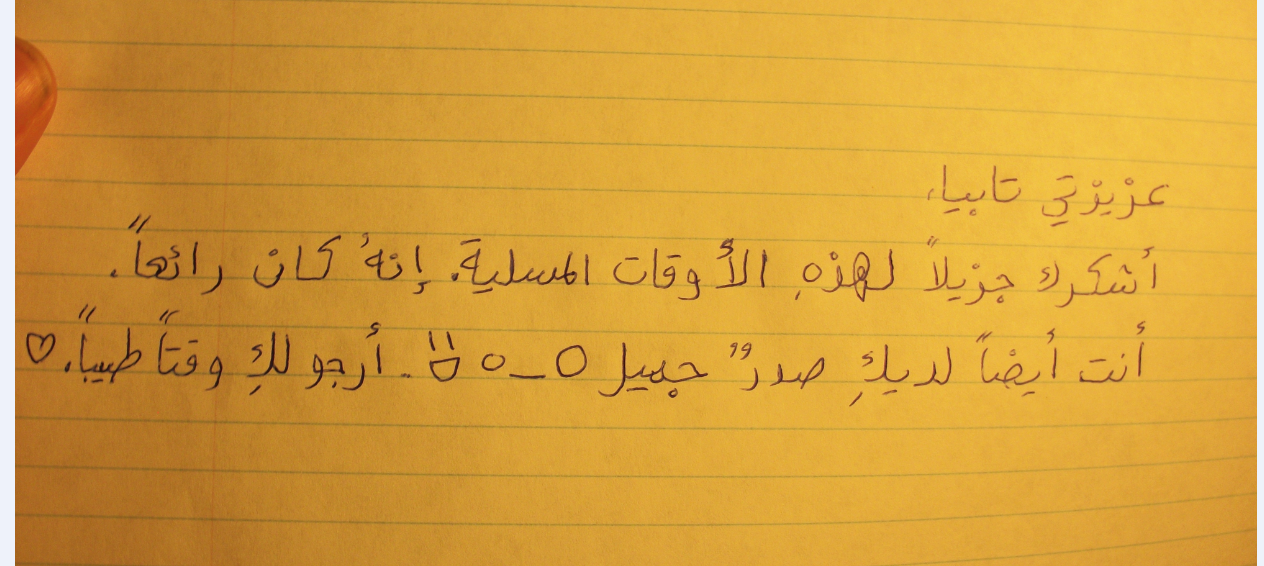 عزيزتي تابيا،
أشكرك جزيلاً لهذهِ الأوقات المسلية. إنهُ كان رائعاً.
أنت أيضاً لديكِ صدرٌ جميل O_o . أرجو لكِ وقتاً طيباً. ♡